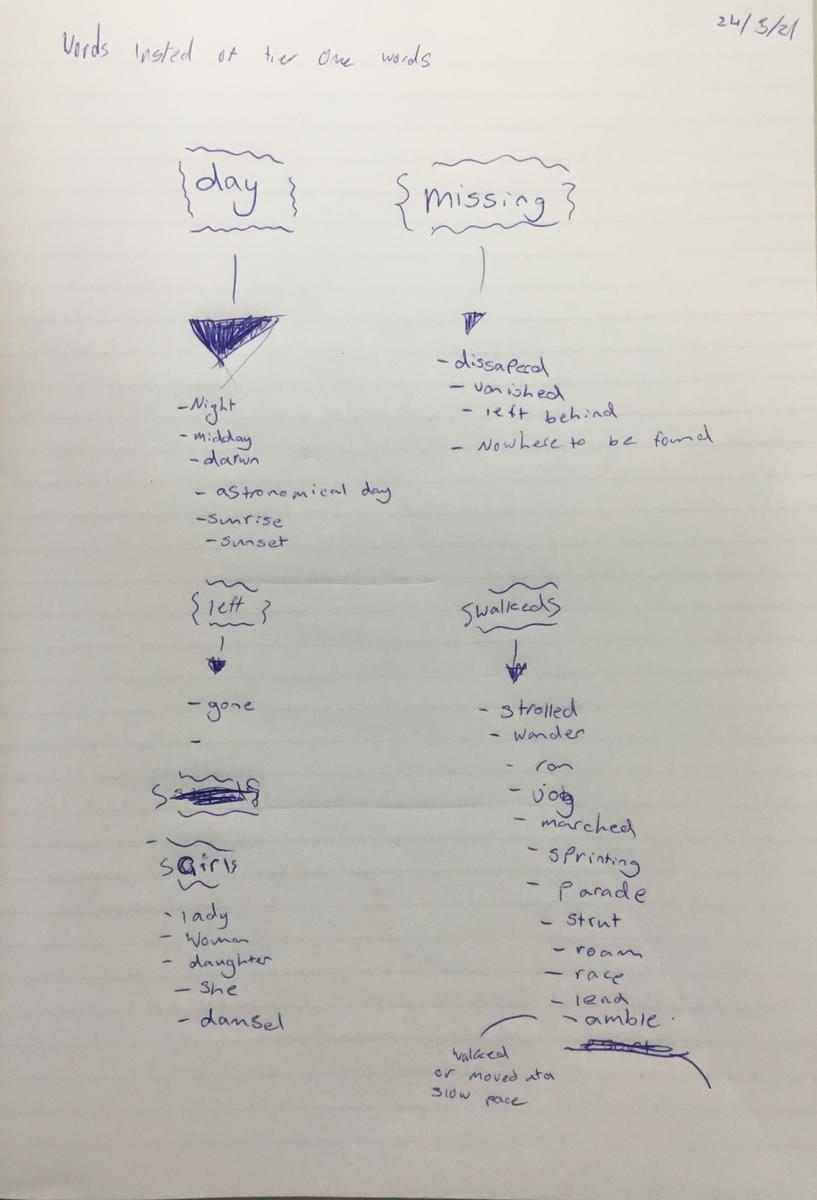 24/5/21
Words Insted of tier One words
{day}
- Night
- midday
- darwn
- astronomical day
- sunrise
- sunset
{missing}
- dissaperd
- vanished
- left behind
- Nowhere to be found
{left}
- gone
-
{Girls
- lady
- Woman
- daughter
- She
- dansel
{walked}
- strolled
- wander
- ran
- jog
- marched
- sprinting
- parade
- strut
- roam
- race
- lead
- amble
walked
or moved at a
slow pace